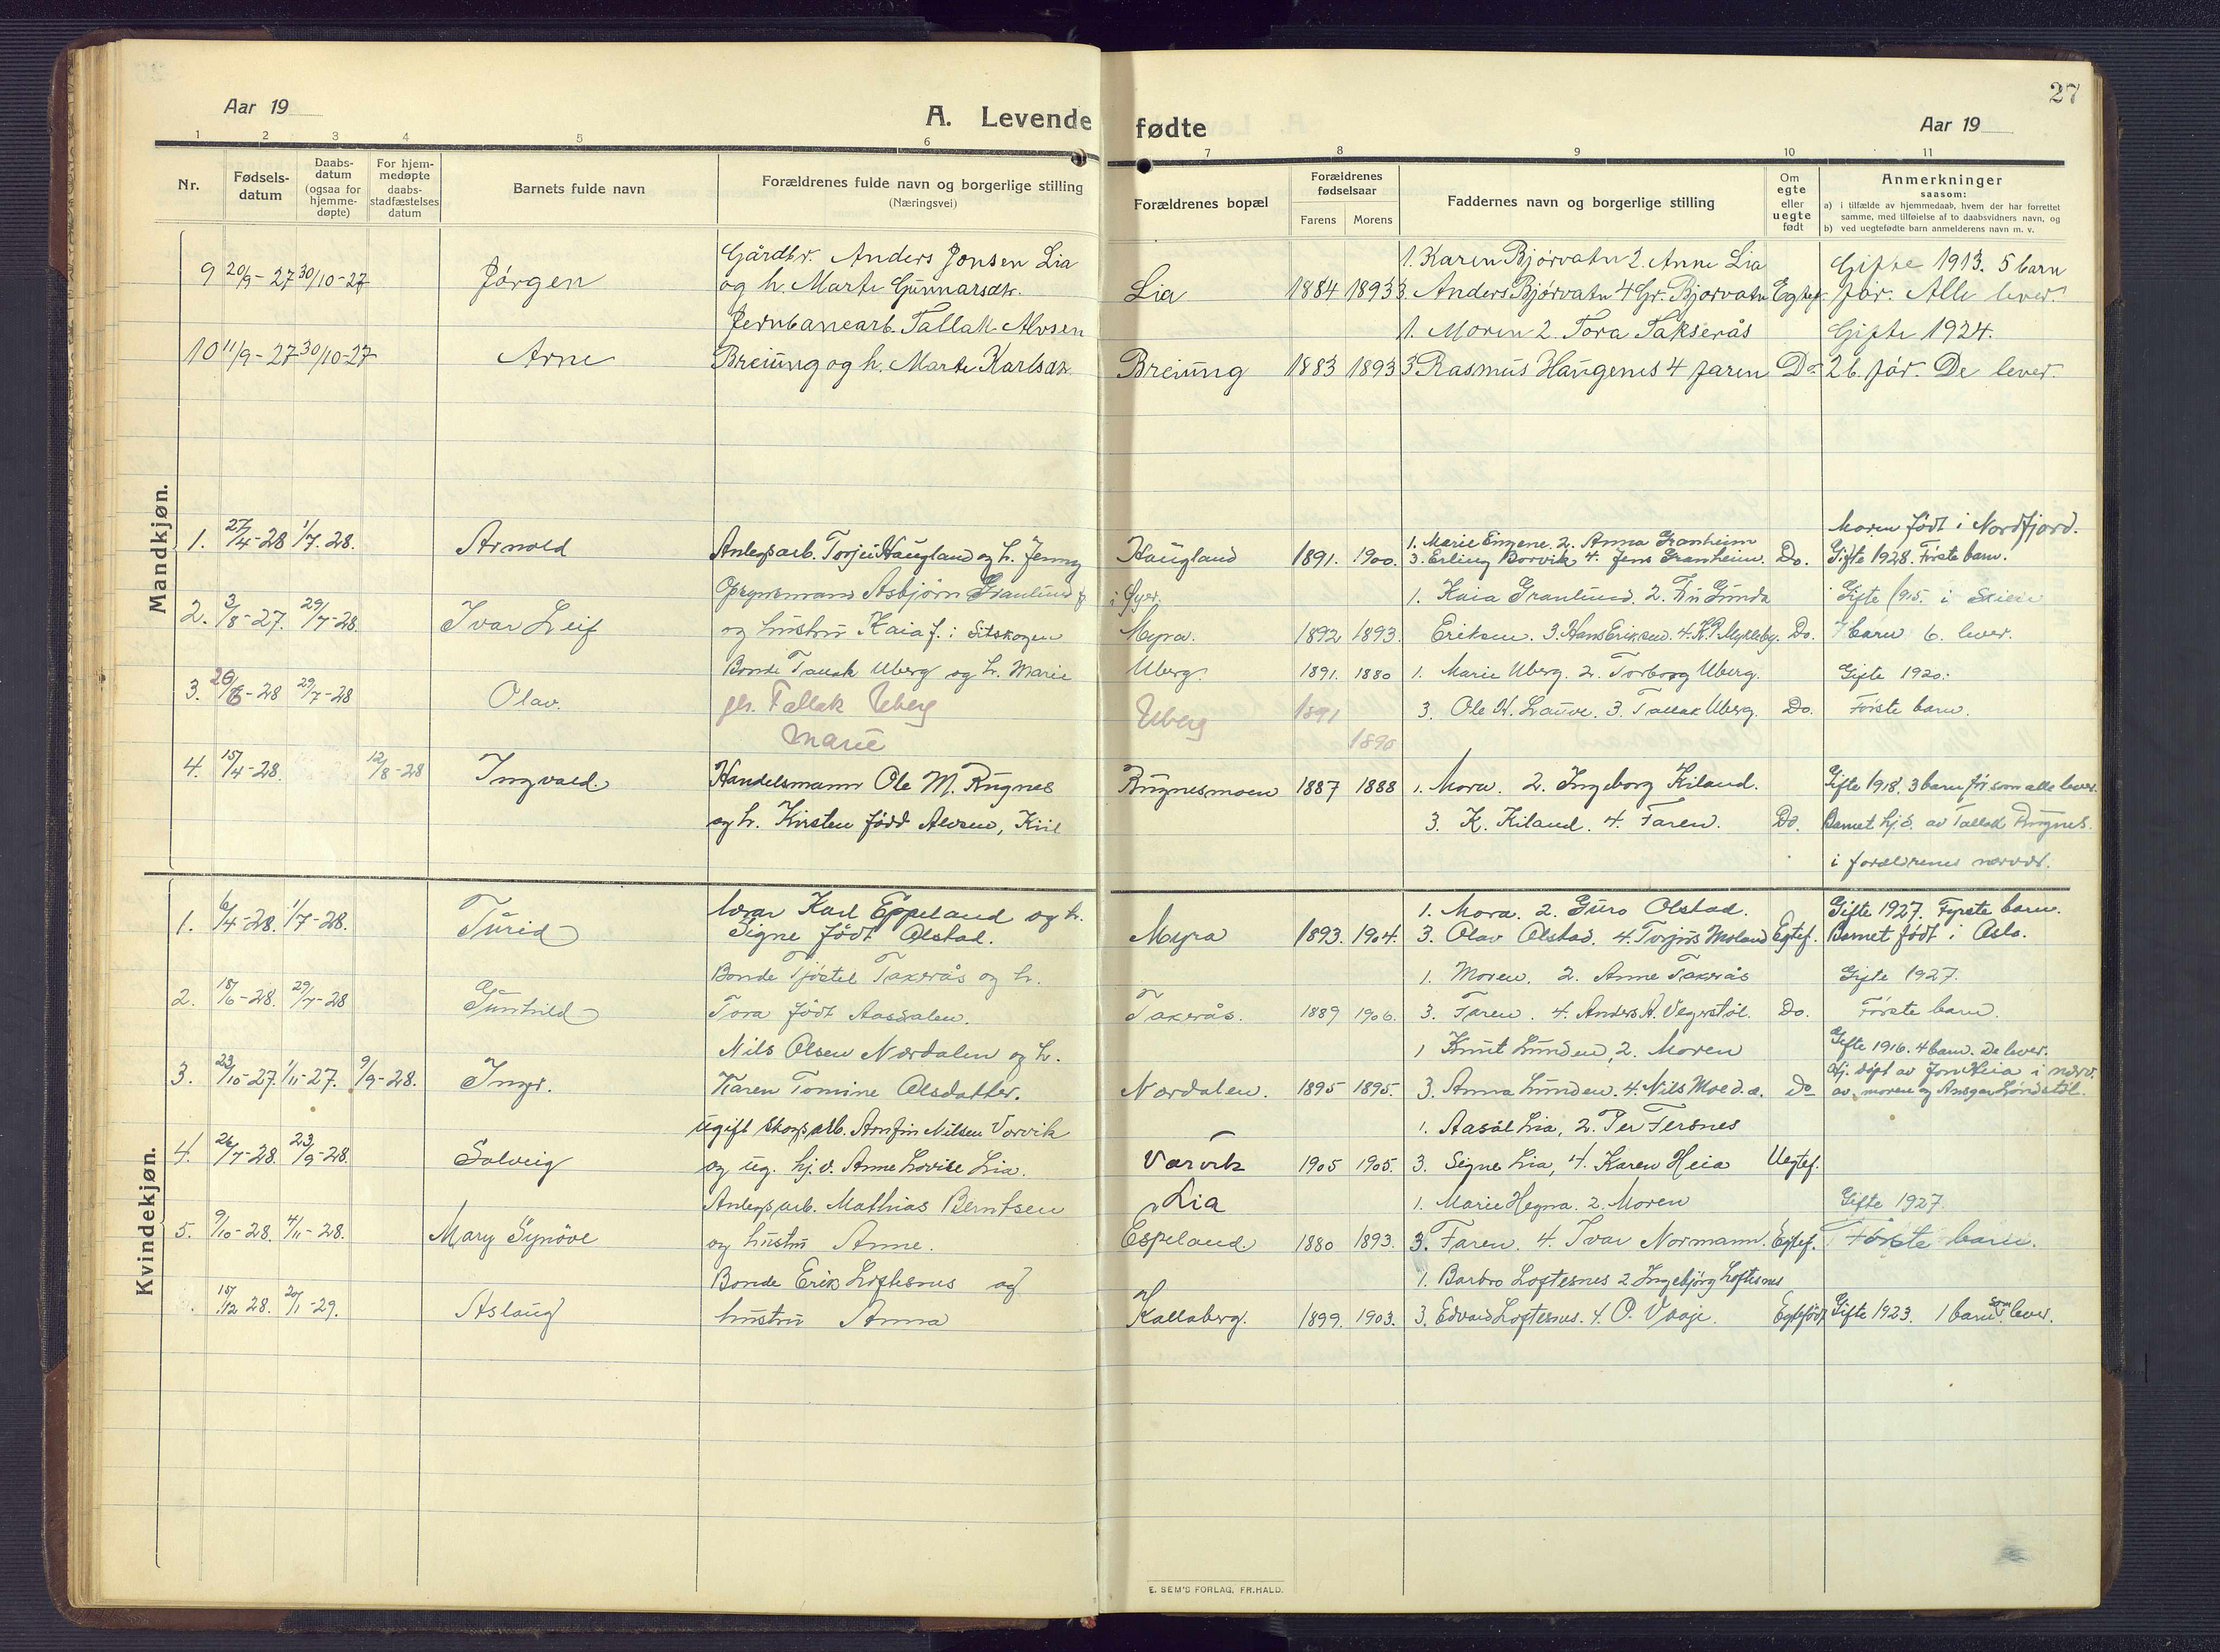 27
Aar 19
A. Levende fødte
Aar 19
1 2 3 4 5 6 7 8 9 10 11
Nr.
Fødsels-
datum
Daabs-
datum
(ogsaa for
hjemme-
døpte)
For hjem-
medøpte
daabs-
stadfæstelses
datum
Barnets fulde navn
Forældrenes fulde navn og borgerlige stilling
(Næringsvei)
Forældrenes bopæl
Forældrenes
fødselsaar
Farens Morens
Faddernes navn og borgerlige stilling
Om
egte
eller
uegte
født
Anmerkninger
saasom:
a) i tilfælde av hjemmedaab, hvem der har forrettet
samme, med tilføielse af to daabsvidners navn, og
b) ved uegtefødte barn anmelderens navn m. v.
Mandkjøn.
Gårdbr. Anders Jonsen Lia 1. Karen Bjørvatn 2. Anne Lia Gifte 1913. 5 barn
9 20/9-27 30/10-27 Jørgen og h. Marte Gunnarsdtr. Lia 1884 1893 3. Anders Bjørvatn 4 Gr. Bjorvatn Egtef. før. Alle lever.
Jernbanearb. Tallak Alvsen 1. Moren 2. Tora Takserås Gifte 1924.
10 11/9-27 30/10-27 Arne Breiung og h. Marte Karlsdtr. Breiung 1883 1893 3 Rasmus Haugenes 4 faren Do 2 b. før. De lever.
Moren født i Nordfjord.
1. Marie 2. Anna Granheim
1. 27/4-28 1/7-28. Arnold Anlegsarb. Torjei Haugland og h. Jenny Haugland 1891. 1900. 3. Erling Borvik 4. Jens Granheim. Do. Gifte 1928. Første barn.
Asbjørn Granlund i Øyer. 1. Kaia Granlund. 2. Fru Gunda Gifte 1915. i Skien
2. 3/8-27. 29/7-28. Ivar Leif og hustru Kaia f. i Sitskogen Myra. 1892 1893. Eriksen. 3. Hans Eriksen. 4. K.P. Mykleby. Do. 7 barn 6. lever.
Bonde Tallak Uberg og h. Marie Uberg. 1891. 1880 1. Marie Uberg. 2. Torborg Uberg. Gifte 1920.
3. 20/6-28 29/7-28 Olav. gbr. Tallak Uberg Uberg 1891 3. Ole K. Lauve. 3. Tallak Uberg. Do. Første barn.
Marie 1890
4. 15/4-28. 12/8-28 Ingvald. Handelsmann Ole M. Rugnes Rugnesmoen 1887 1888 1. Mora. 2. Ingeborg Kiland. Gifte 1918. 3 barn før som alle lever.
og h. Kirsten født Alvsen, Kiil 3. K. Kiland. 4. Faren. Do. Barnet hj.d. av Tallak Rugnes.
i forældrenes nærvær.
Kvindekjøn.
Lærar Karl Eppeland og h. 1. Mora. 2. Guro Olstad. Gifte 1927. Fyrste barn.
1. 6/4-28. 1/7-28. Turid Signe født Olstad. Myra 1893. 1904. 3. Olav Olstad. 4. Torjus Moland Egtef. Barnet født i Oslo.
Bonde Tjøstel Takerås og h. 1. Moren. 2. Anne Takerås Gifte 1927.
2. 18/6-28. 29/7-28 Gunhild Tora født Aasdalen. Takerås. 1889 1906. 3. Faren. 4. Anders A. Vegerstøl. Do. Første barn.
Nils Olsen Nordalen og h. 1 Knut Lunden, 2. Moren Gifte 1916. 4 barn. De lever.
3. 23/10-27. 1/11-27. 9/9-28. Inger. Karen Tomine Olsdatter. Nordalen. 1895 1895. 3. Anna Lunden. 4. Nils Moe d.æ. Do Hj. døpt av Jon Heia i nærv.
av moren og Ansgar Løndstøl.
Ugift skogsarb. Arnfin Nilsen Vorvik 1. Aasøl Lia, 2. Per Fersnes
4. 26/7-28. 23/9-28. Solveig og ug. hj.v. Anne Lovise Lia. Værvik 1905 1905. 3. Signe Lia, 4. Karen Heia Uegtef.
Anlegsarb. Mathias Berntsen Lia 1. Marie Hegna. 2. Moren Gifte 1927.
5. 9/10-28. 4/11-28. Mary Synøve og hustru Anne. Espeland. 1880 1893. 3. Faren. 4. Ivar Normann. Egtef. Første barn.
Bonde Erik Loftesnes og 1. Barbro Loftesnes 2 Ingebjørg Loftesnes
15/12 28. 20/1-29. Aslaug hustru Anna Kallaberg. 1899. 1903. 3. Edvard Loftesnes. 4. O. Vaaje. Egtefødt Gifte 1923. 1 barn som lever.
E. SEM'S FORLAG, FR.HALD.